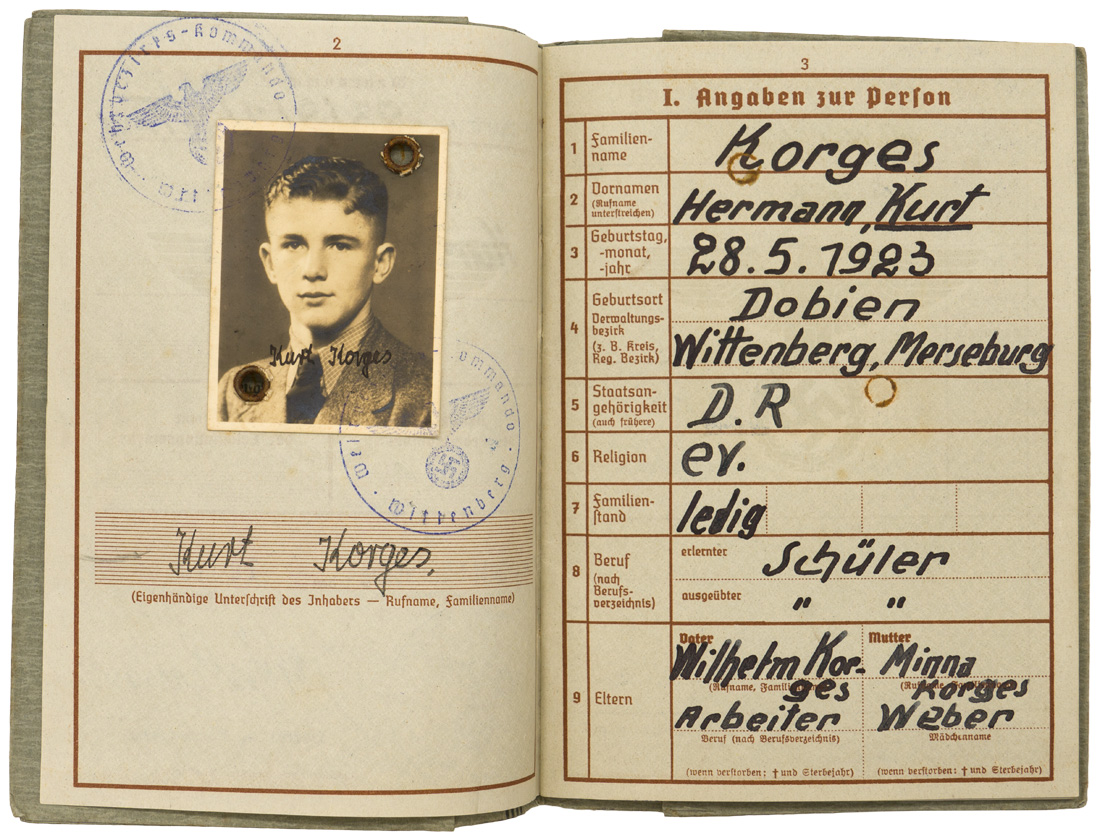 2
Wehrbezirks-Kommando
Kurt Korges
Wittenberg
Kurt Korges.
(Eigenhändige Unterschrift des Inhabers — Rufname, Familienname)
3
I. Angaben zur Person
1 Familien-
name
Korges
2 Vornamen
(Rufname
unterstreichen)
Hermann, Kurt
3 Geburtstag,
-monat,
-jahr
28.5.1923
4 Geburtsort
Verwaltungs-
bezirk
(z. B. Kreis,
Reg. Bezirk)
Dobien
Wittenberg, Merseburg
5 Staatsan-
gehörigkeit
(auch frühere)
D.R
6 Religion
ev.
7 Familien-
stand
ledig
8 Beruf
(nach
Berufs-
verzeichnis)
erlernter
Schüler
ausgeübter
" "
9 Eltern
Vater
Wilhelm Kor-
ges
(Rufname, Familienname)
Arbeiter
Beruf (nach Berufsverzeichnis)
(wenn verstorben: † und Sterbejahr)
Mutter
Minna
Korges
Weber
Mädchenname
(wenn verstorben: † und Sterbejahr)